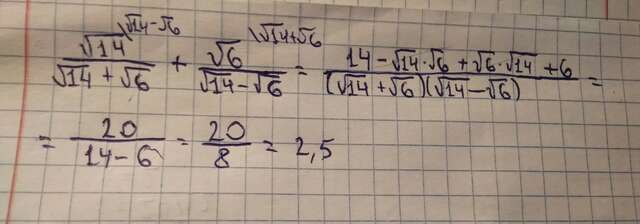 √14 \√14-√6 / √14 + √6 + √6 \√14+√6 / √14-√6 = 14 - √14·√6 + √6·√14 + 6 / (√14+√6)(√14-√6) =
= 20 / 14-6 = 20 / 8 = 2,5